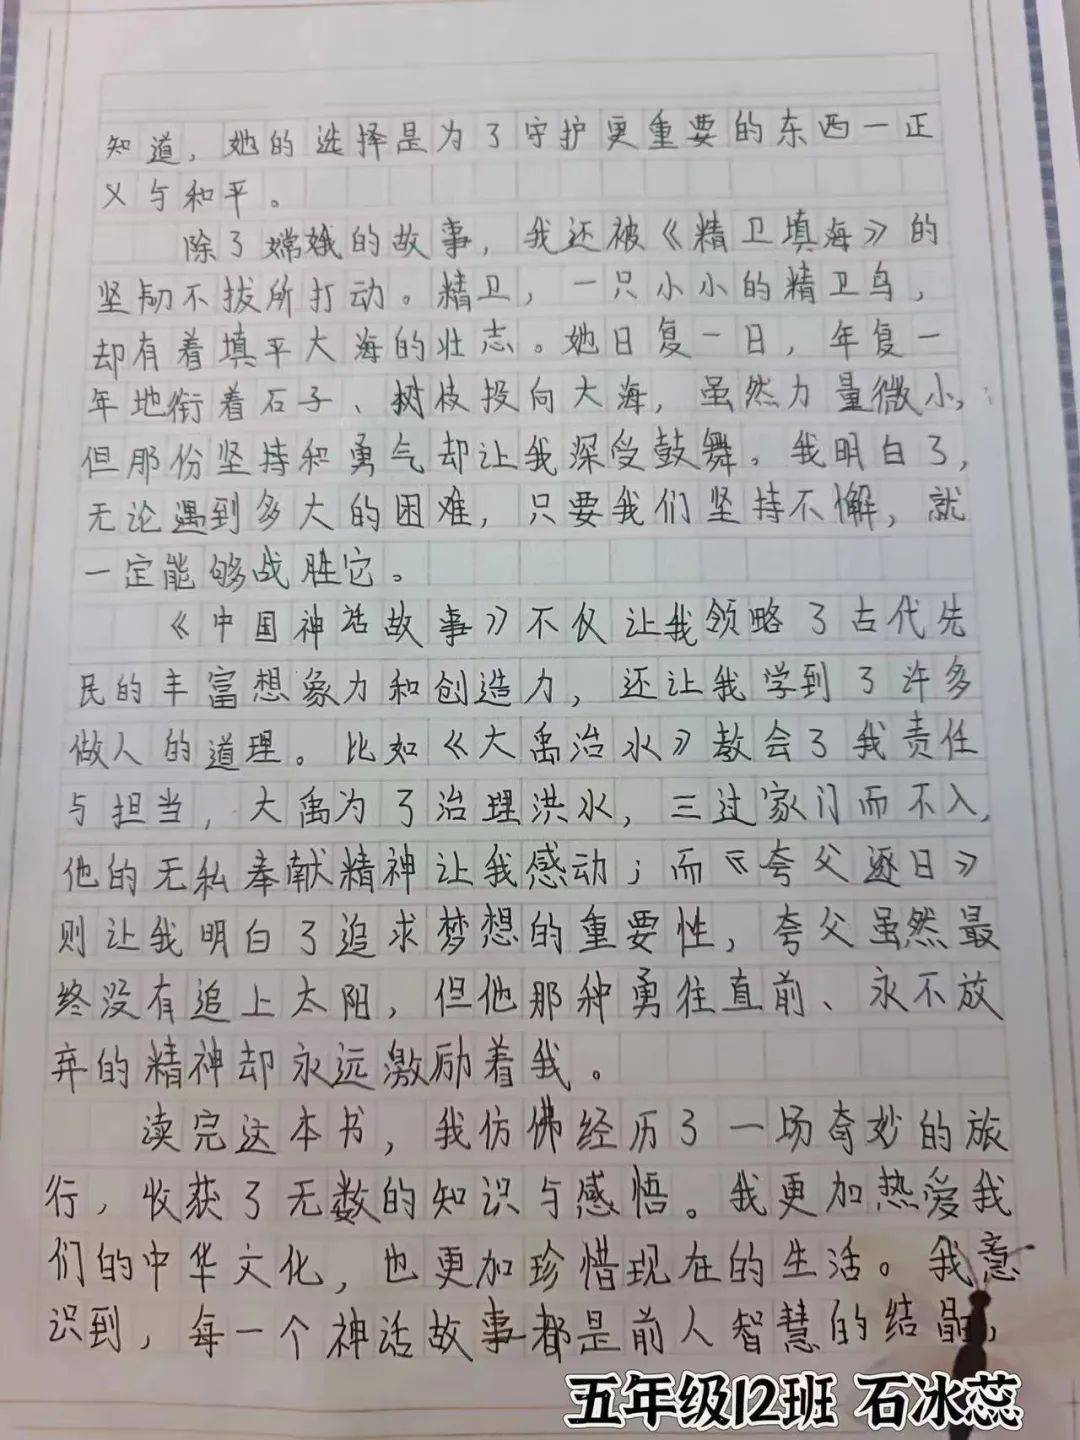 知道，她的选择是为了守护更重要的东西一正
义与和平。
除了嫦娥的故事，我还被《精卫填海》的
坚韧不拔所打动。精卫，一只小小的精卫鸟，
却有着填平大海的壮志。她日复一日，年复一
年地衔着石子、树枝投向大海，虽然力量微小，
但那份坚持和勇气却让我深受鼓舞。我明白了，
无论遇到多大的困难，只要我们坚持不懈，就
一定能够战胜它。
《中国神话故事》不仅让我领略了古代先
民的丰富想象力和创造力，还让我学到了许多
做人的道理。比如《大禹治水》教会了我责任
与担当，大禹为了治理洪水，三过家门而不入，
他的无私奉献精神让我感动；而《夸父逐日》
则让我明白了追求梦想的重要性，夸父虽然最
终没有追上太阳，但他那种勇往直前、永不放
弃的精神却永远激励着我。
读完这本书，我仿佛经历了一场奇妙的旅
行，收获了无数的知识与感悟。我更加热爱我
们的中华文化，也更加珍惜现在的生活。我意
识到，每一个神话故事都是前人智慧的结晶，
五年级12班 石冰蕊